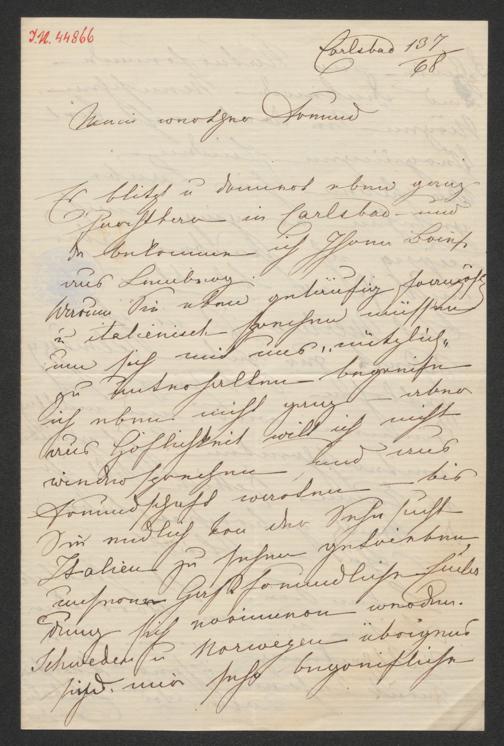 I.N. 44866
Carlsbad 13/7
/68
Mein werther Freund
Es blitzt u donnert eben ganz
furchtbar in Carlsbad – und
da bekomme ich Ihren Brief
aus Lemberg
Warum Sie eben geläufig französ
u italienisch sprechen müssen
um sich mit uns „nützlich“
zu unterhalten begreife
ich eben nicht ganz – aber
aus Höflichkeit will ich nicht
widersprechen und aus
Freundschaft warten – bis
Sie endlich von der Sehnsucht
Italien zu sehen getrieben
unserer Gastfreundlichen
sich erinnern werden.
Schweden u Norwegen übrigens
sind mir sehr begreifliche